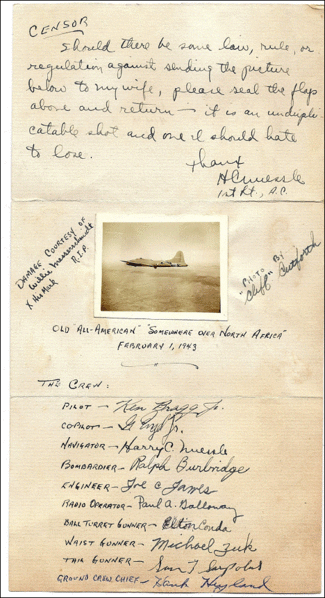 CENSOR
Should there be some law, rule, or
regulation against sending the picture
below to my wife, please seal the flap
above and return — it is an undupli-
catable shot and one I'd should hate
to lose.
Thanx
HCNuessle
1st Lt., A.C.
DAMAGE COURTESY OF
Willie Messerschmidt
R.I.P.
X His Mark
"PHOTO BY
Cliff" Cutforth
OLD "ALL-AMERICAN" "SOMEWHERE OVER NORTH AFRICA"
FEBRUARY 1, 1943
THE CREW:
PILOT — Ken Bragg Jr.
COPILOT — G. Engel Jr.
NAVIGATOR — Harry C. Nuessle
BOMBARDIER — Ralph Burbridge
ENGINEER — Joe C James
RADIO OPERATOR — Paul A. Galloway
BALL TURRET GUNNER — Elton Conda
WAIST GUNNER — Michael Zuk
TAIL GUNNER — Sam T Sarpolus
GROUND CREW CHIEF — Hank Hyland